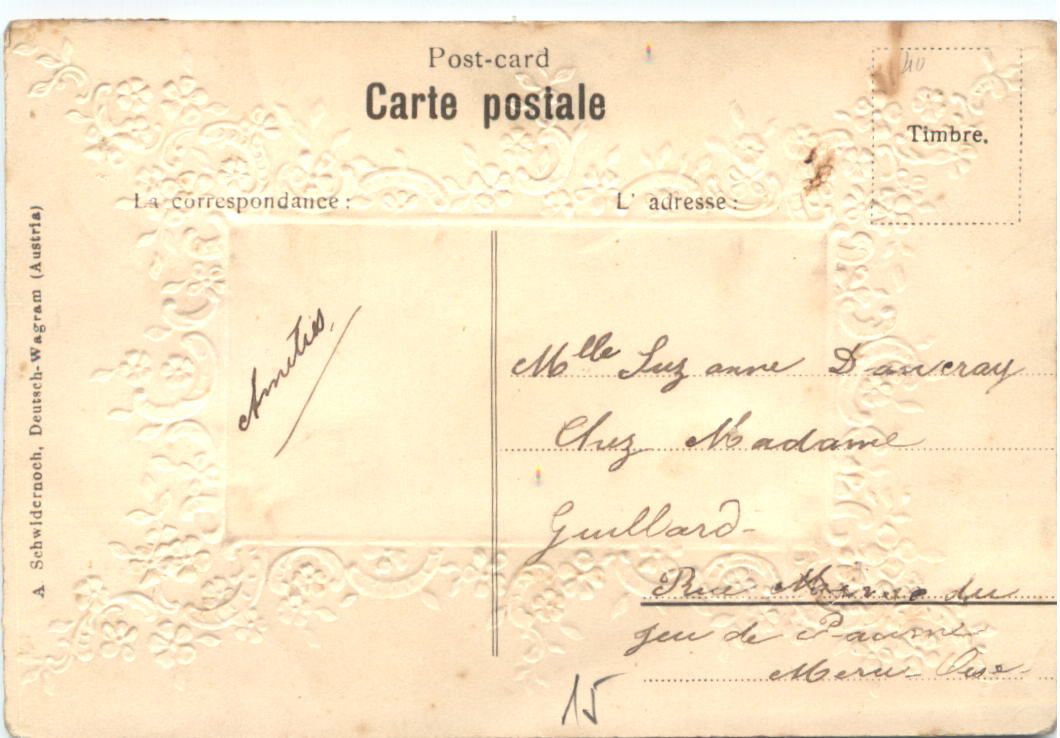 Post-card
Carte postale
40
Timbre.
La correspondance :
L' adresse :
A Schwidernoch, Deutsch-Wagram (Austria)
Amitiés,
Mlle Suzanne Dancray
Chez Madame
Guillard-
Rue du
jeu de Paume
Meru-Oise-
15